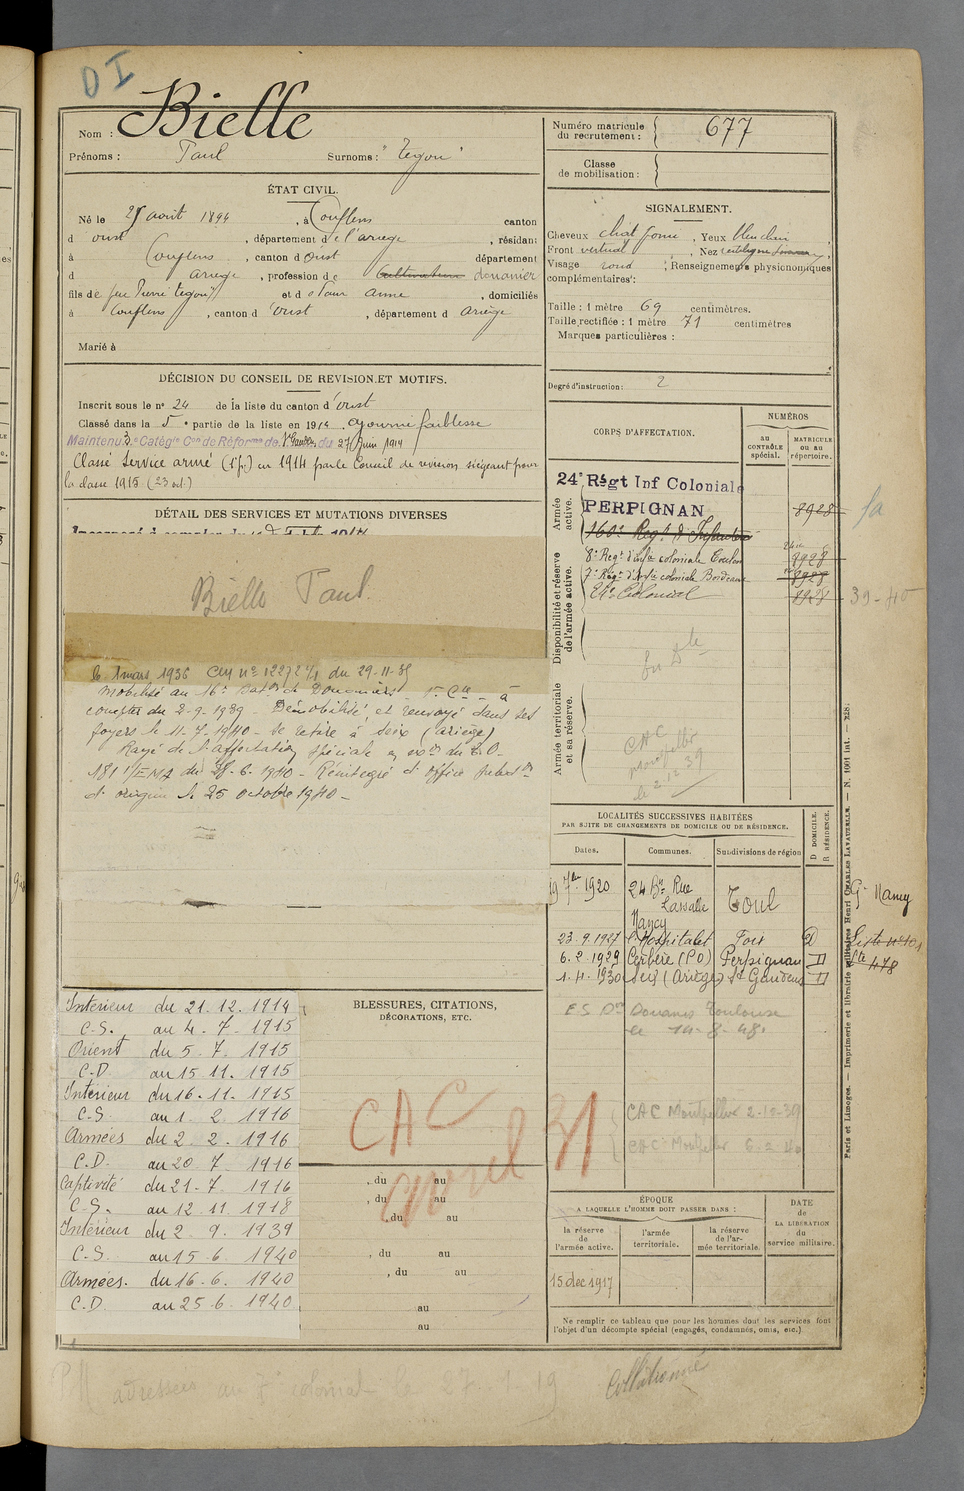 DI
Nom : Bielle
Prénoms : Paul Surnoms : "Tégou"
ÉTAT CIVIL.
Né le 25 août 1894, à Couflens canton
d oust, département de l'ariège, résidant
à Couflens, canton d oust département
d ariège, profession de cultivateur douanier
fils de feu Pierre "tegou" et d Anne, domiciliés
à Couflens, canton d'oust, département d ariège
Marié à
DÉCISION DU CONSEIL DE REVISION ET MOTIFS.
Inscrit sous le n° 24 de la liste du canton d'oust
Classé dans la 5e partie de la liste en 1914 ajourné faiblesse
Maintenu 3e Catégie Con de Réforme de St Gaudens du 27 Juin 1914
Classé Service armé (1e p.) en 1914 par le Conseil de revision siégeant pour
la classe 1915 (23 oct.)
DÉTAIL DES SERVICES ET MUTATIONS DIVERSES
Bielle Paul
le 1 mars 1936 du 29-11-35
Mobilisé au 16e Bat. de Douaniers - 1e Cie - à
compter du 2-9-1939 - Démobilisé, et renvoyé dans ses
foyers le 11-7-1940 - Se retire à Seix (ariège)
Rayé de l'affectation spéciale
du 25-6-1940 - Réintégré d'office
d'origine le 25 octobre 1940 -
Intérieur du 21.12.1914
C.S. au 4.7.1915
Orient du 5.7.1915
C.D. au 15.11.1915
Intérieur du 16.11.1915
C.S. au 1.2.1916
Armées du 2.2.1916
C.D. au 20.7.1916
Captivité du 21.7.1916
C.S. au 12.11.1918
Intérieur du 2.9.1939
C.S. au 15.6.1940
Armées. du 16.6.1940
C.D. au 25.6.1940
BLESSURES, CITATIONS,
DÉCORATIONS, ETC.
CAC
avril 31
, du au
, du au
, du au
, du au
, du au
au
au
Numéro matricule
du recrutement : 677
Classe
de mobilisation :
SIGNALEMENT.
Cheveux chat foncé, Yeux bleu clair,
Front vertical, Nez rectiligne,
Visage rond; Renseignements physionomiques
complémentaires :
Taille : 1 mètre 69 centimètres.
Taille rectifiée : 1 mètre 71 centimètres
Marques particulières :
Degré d'instruction : 2
CORPS D'AFFECTATION.
NUMÉROS
AU
CONTRÔLE
spécial.
MATRICULE
OU AU
répertoire.
Armée
active.
24e Régt Inf Coloniale
PERPIGNAN 8928
160e Regt d'Infanterie
Disponibilité et réserve
de l'armée active.
8e Regt d'infie coloniale Toulon 8928
7e Régt d'Infie coloniale Bordeaux 8928
24e Colonial 8928 39-40
Armée territoriale
et sa réserve.
CAC
Montpellier
le 2.12.39
LOCALITÉS SUCCESSIVES HABITÉES
PAR SUITE DE CHANGEMENTS DE DOMICILE OU DE RÉSIDENCE.
Dates. Communes. Subdivisions de région
D DOMICILE.
R RÉSIDENCE.
19 7bre 1920 24 Bis Rue Lassalle Nancy Toul
Gr Nancy
23.9.1927 l'Hospitalet Foix D
6.2.1929 Cerbère (P.O) Perpignan D
1.4.1930 Seix (Ariège) St Gaudens D
Liste n° 101
478
E.S Don Douanes Toulouse
le 14.8.48.
CAC Montpellier 2-12-39
CAC Montpellier 6-2-40
ÉPOQUE
A LAQUELLE L'HOMME DOIT PASSER DANS :
la réserve
de
l'armée active.
l'armée
territoriale.
la réserve
de l'ar-
mée territoriale.
DATE
de
LA LIBÉRATION
du
service militaire.
15 dec 1917
Ne remplir ce tableau que pour les hommes dont les services font
l'objet d'un décompte spécial (engagés, condamnés, omis, etc.)
Paris et Limoges. — Imprimerie et librairie militaires Henri CHARLES LAVAUZELLE. — N. 1001 int. —
adressée au 7e colonial le 27.1.19
Collationné